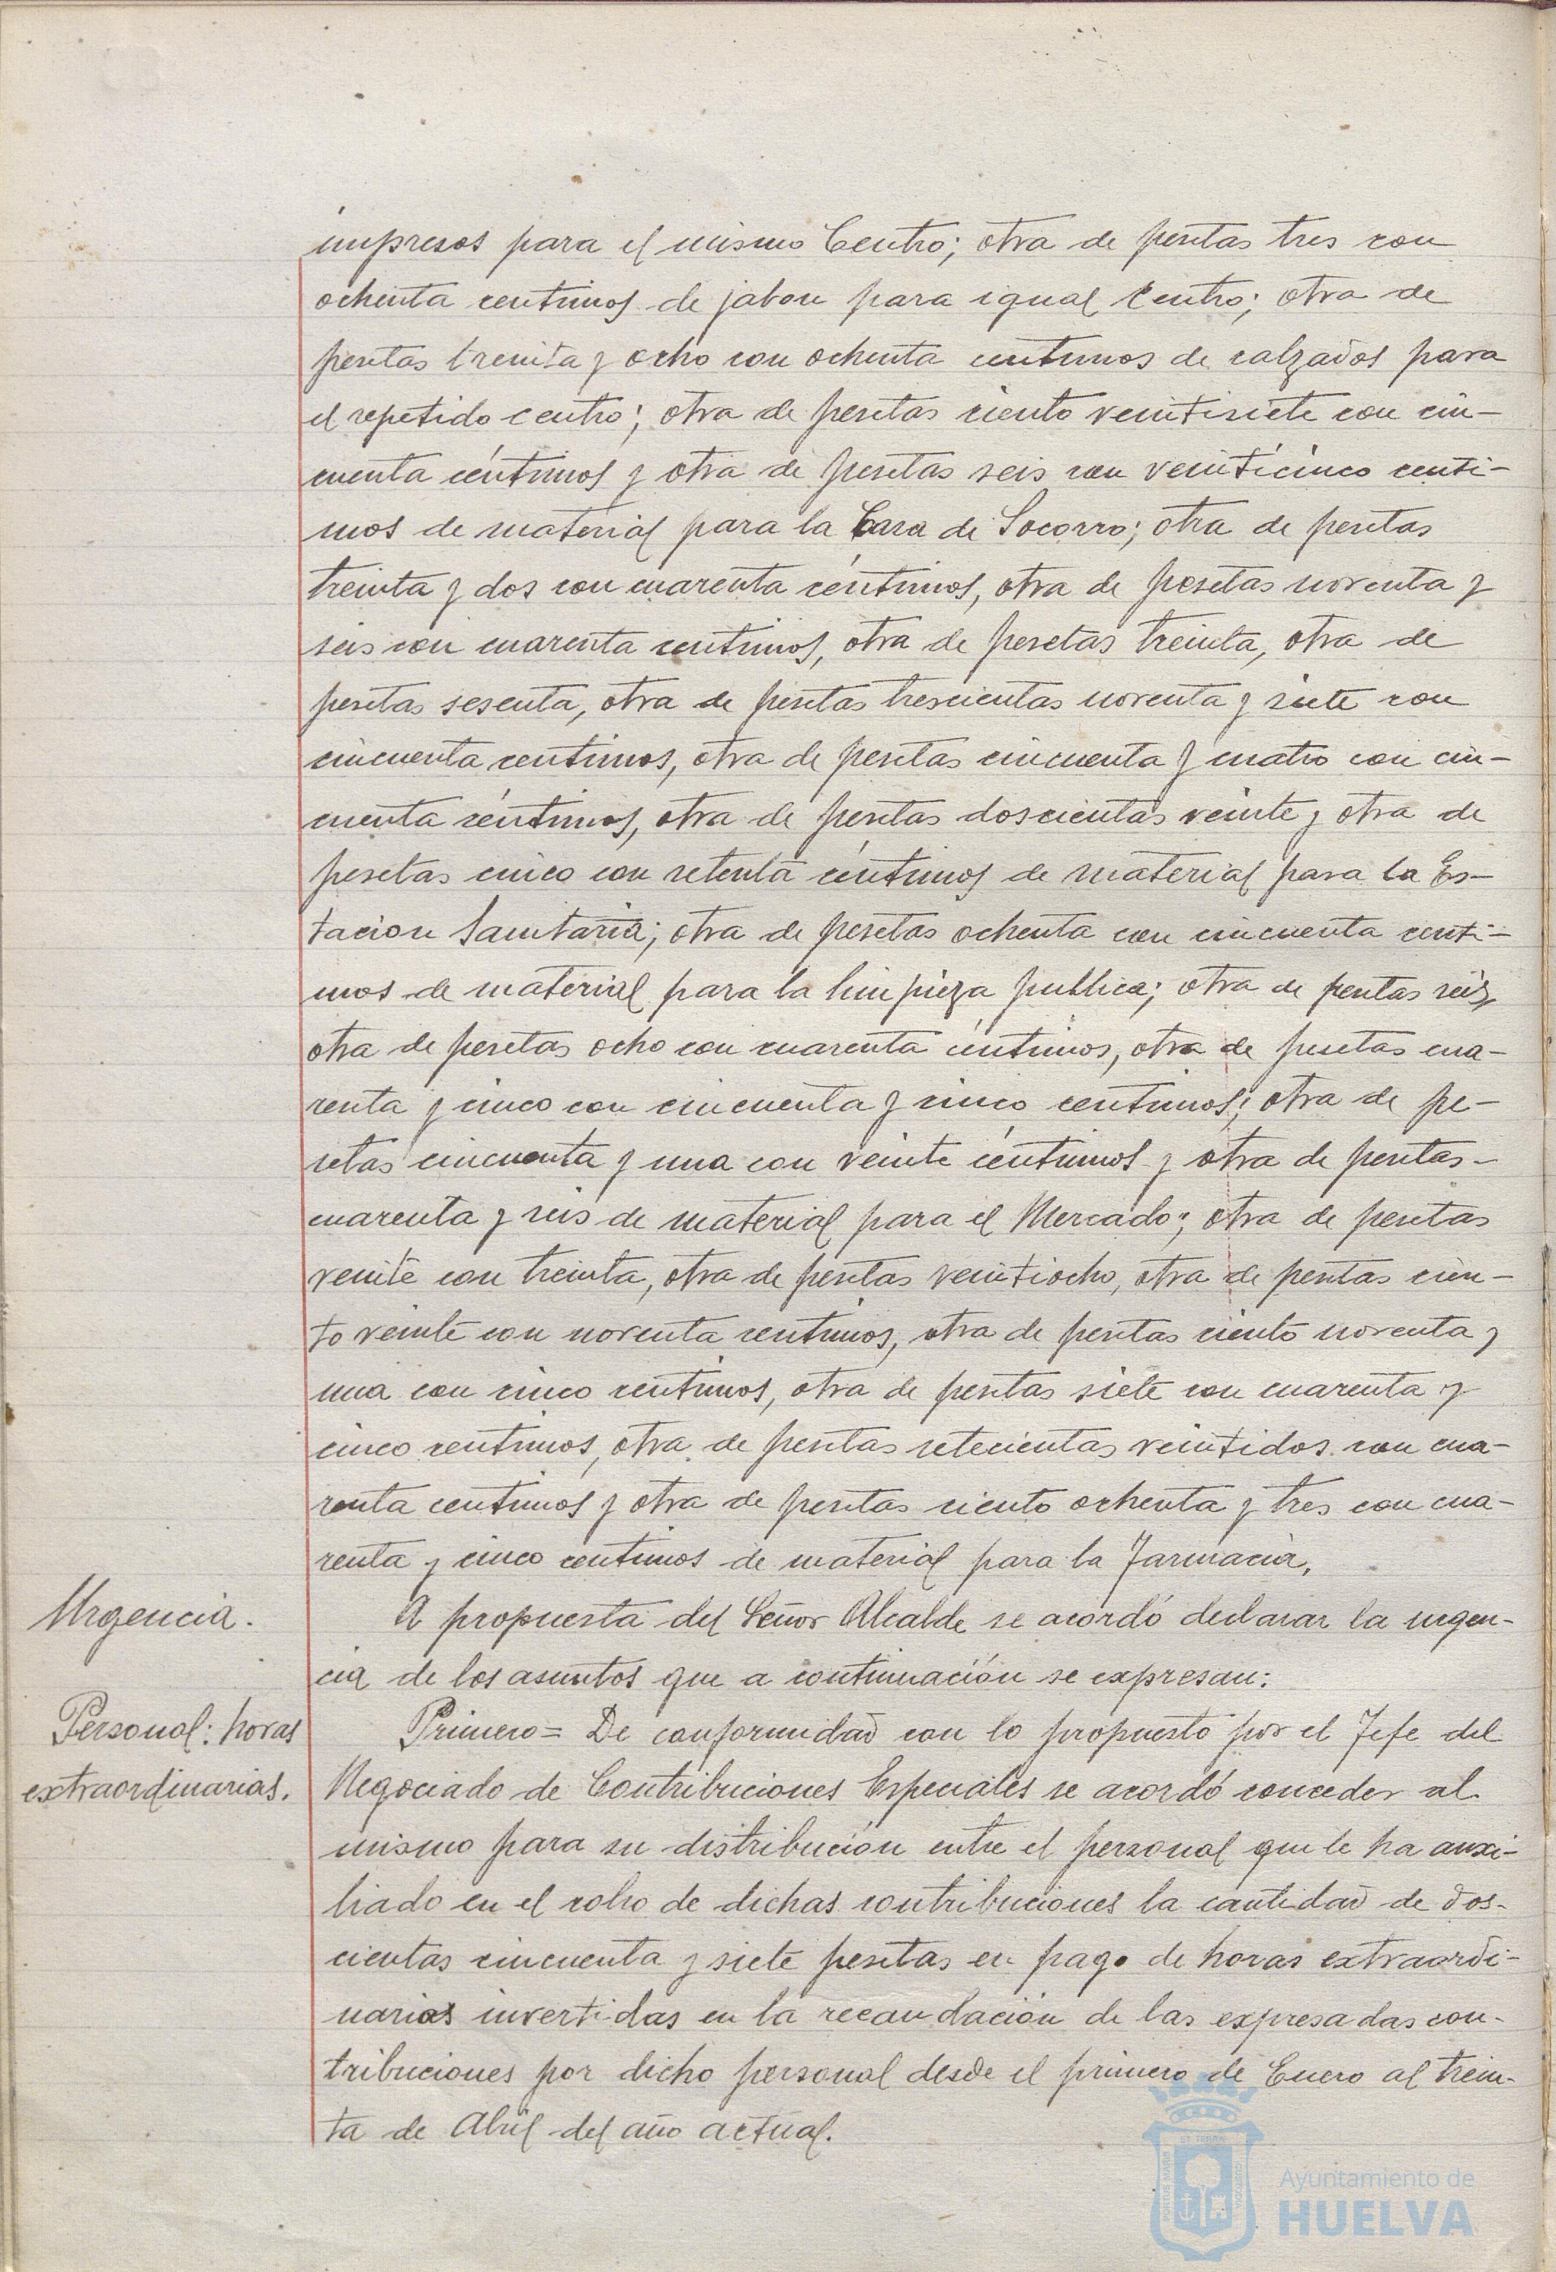 impresos para el mismo Centro; otra de pesetas tres con
ochenta centimos de jabon para igual Centro; otra de
pesetas treinta y ocho con ochenta centimos de calzados para
el repetido centro; otra de pesetas ciento veintisiete con cin-
cuenta céntimos y otra de pesetas seis con veinticinco centi-
mos de material para la Casa de Socorro; otra de pesetas
treinta y dos con cuarenta céntimos, otra de pesetas noventa y
seis con cuarenta centimos, otra de pesetas treinta, otra de
pesetas sesenta, otra de pesetas trescientas noventa y siete con
cincuenta centimos, otra de pesetas cincuenta y cuatro con cin-
cuenta céntimos, otra de pesetas doscientas veinte y otra de
pesetas cinco con setenta céntimos de material para la Es-
tacion Sanitaria; otra de pesetas ochenta con cincuenta centi-
mos de material para la limpieza publica; otra de pesetas seis,
otra de pesetas ocho con cuarenta céntimos, otra de pesetas cua-
renta y cinco con cincuenta y cinco centimos; otra de pe-
setas cincuenta y una con veinte céntimos y otra de pesetas-
cuarenta y seis de material para el Mercado; otra de pesetas
veinte con treinta, otra de pesetas veintiocho, otra de pesetas cien-
to veinte con noventa centimos, otra de pesetas ciento noventa y
una con cinco centimos, otra de pesetas siete con cuarenta y
cinco centimos, otra de pesetas setecientas veintidos con cua-
renta centimos y otra de pesetas ciento ochenta y tres con cua-
renta y cinco centimos de material para la Farmacia.
Urgencia.
A propuesta del Señor Alcalde se acordó declarar la urgen-
cia de los asuntos que a continuación se expresan:
Personal: horas
extraordinarias.
Primero = De conformidad con lo propuesto por el Jefe del
Negociado de Contribuciones Especiales se acordó conceder al
mismo para su distribución entre el personal que le ha auxi-
liado en el cobro de dichas contribuciones la cantidad de dos-
cientas cincuenta y siete pesetas en pago de horas extraordi-
narias invertidas en la recaudación de las expresadas con-
tribuciones por dicho personal desde el primero de Enero al trein-
ta de Abril del año actual.
Ayuntamiento de
HUELVA